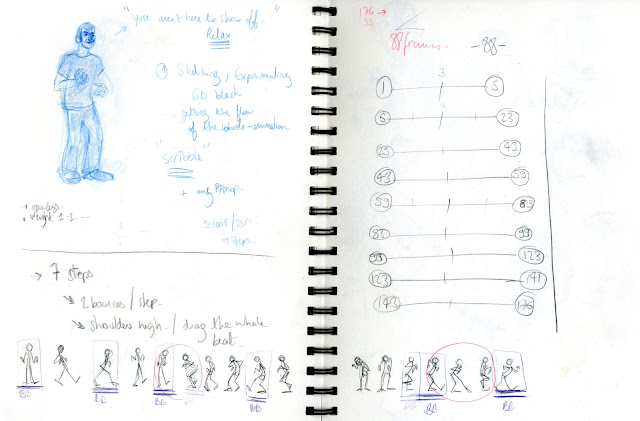 "you aren't here to show off -
Relax
① Sketching, Experimenting
GB black
getting the flow
of the whole-animation
"scribble"
+ only
9 steps.
+
• weight 1-2 ---
→ 7 steps
↘ 2 bounces / step.
↘ shoulders high. / drag the whole
beat.
BB
BB
BB
BB
176 →
88 frames - -88-
3
1 5
6 23
23 43
43 59
59 83
83 93
93 123
123 141
143 176
BB
BB
BB